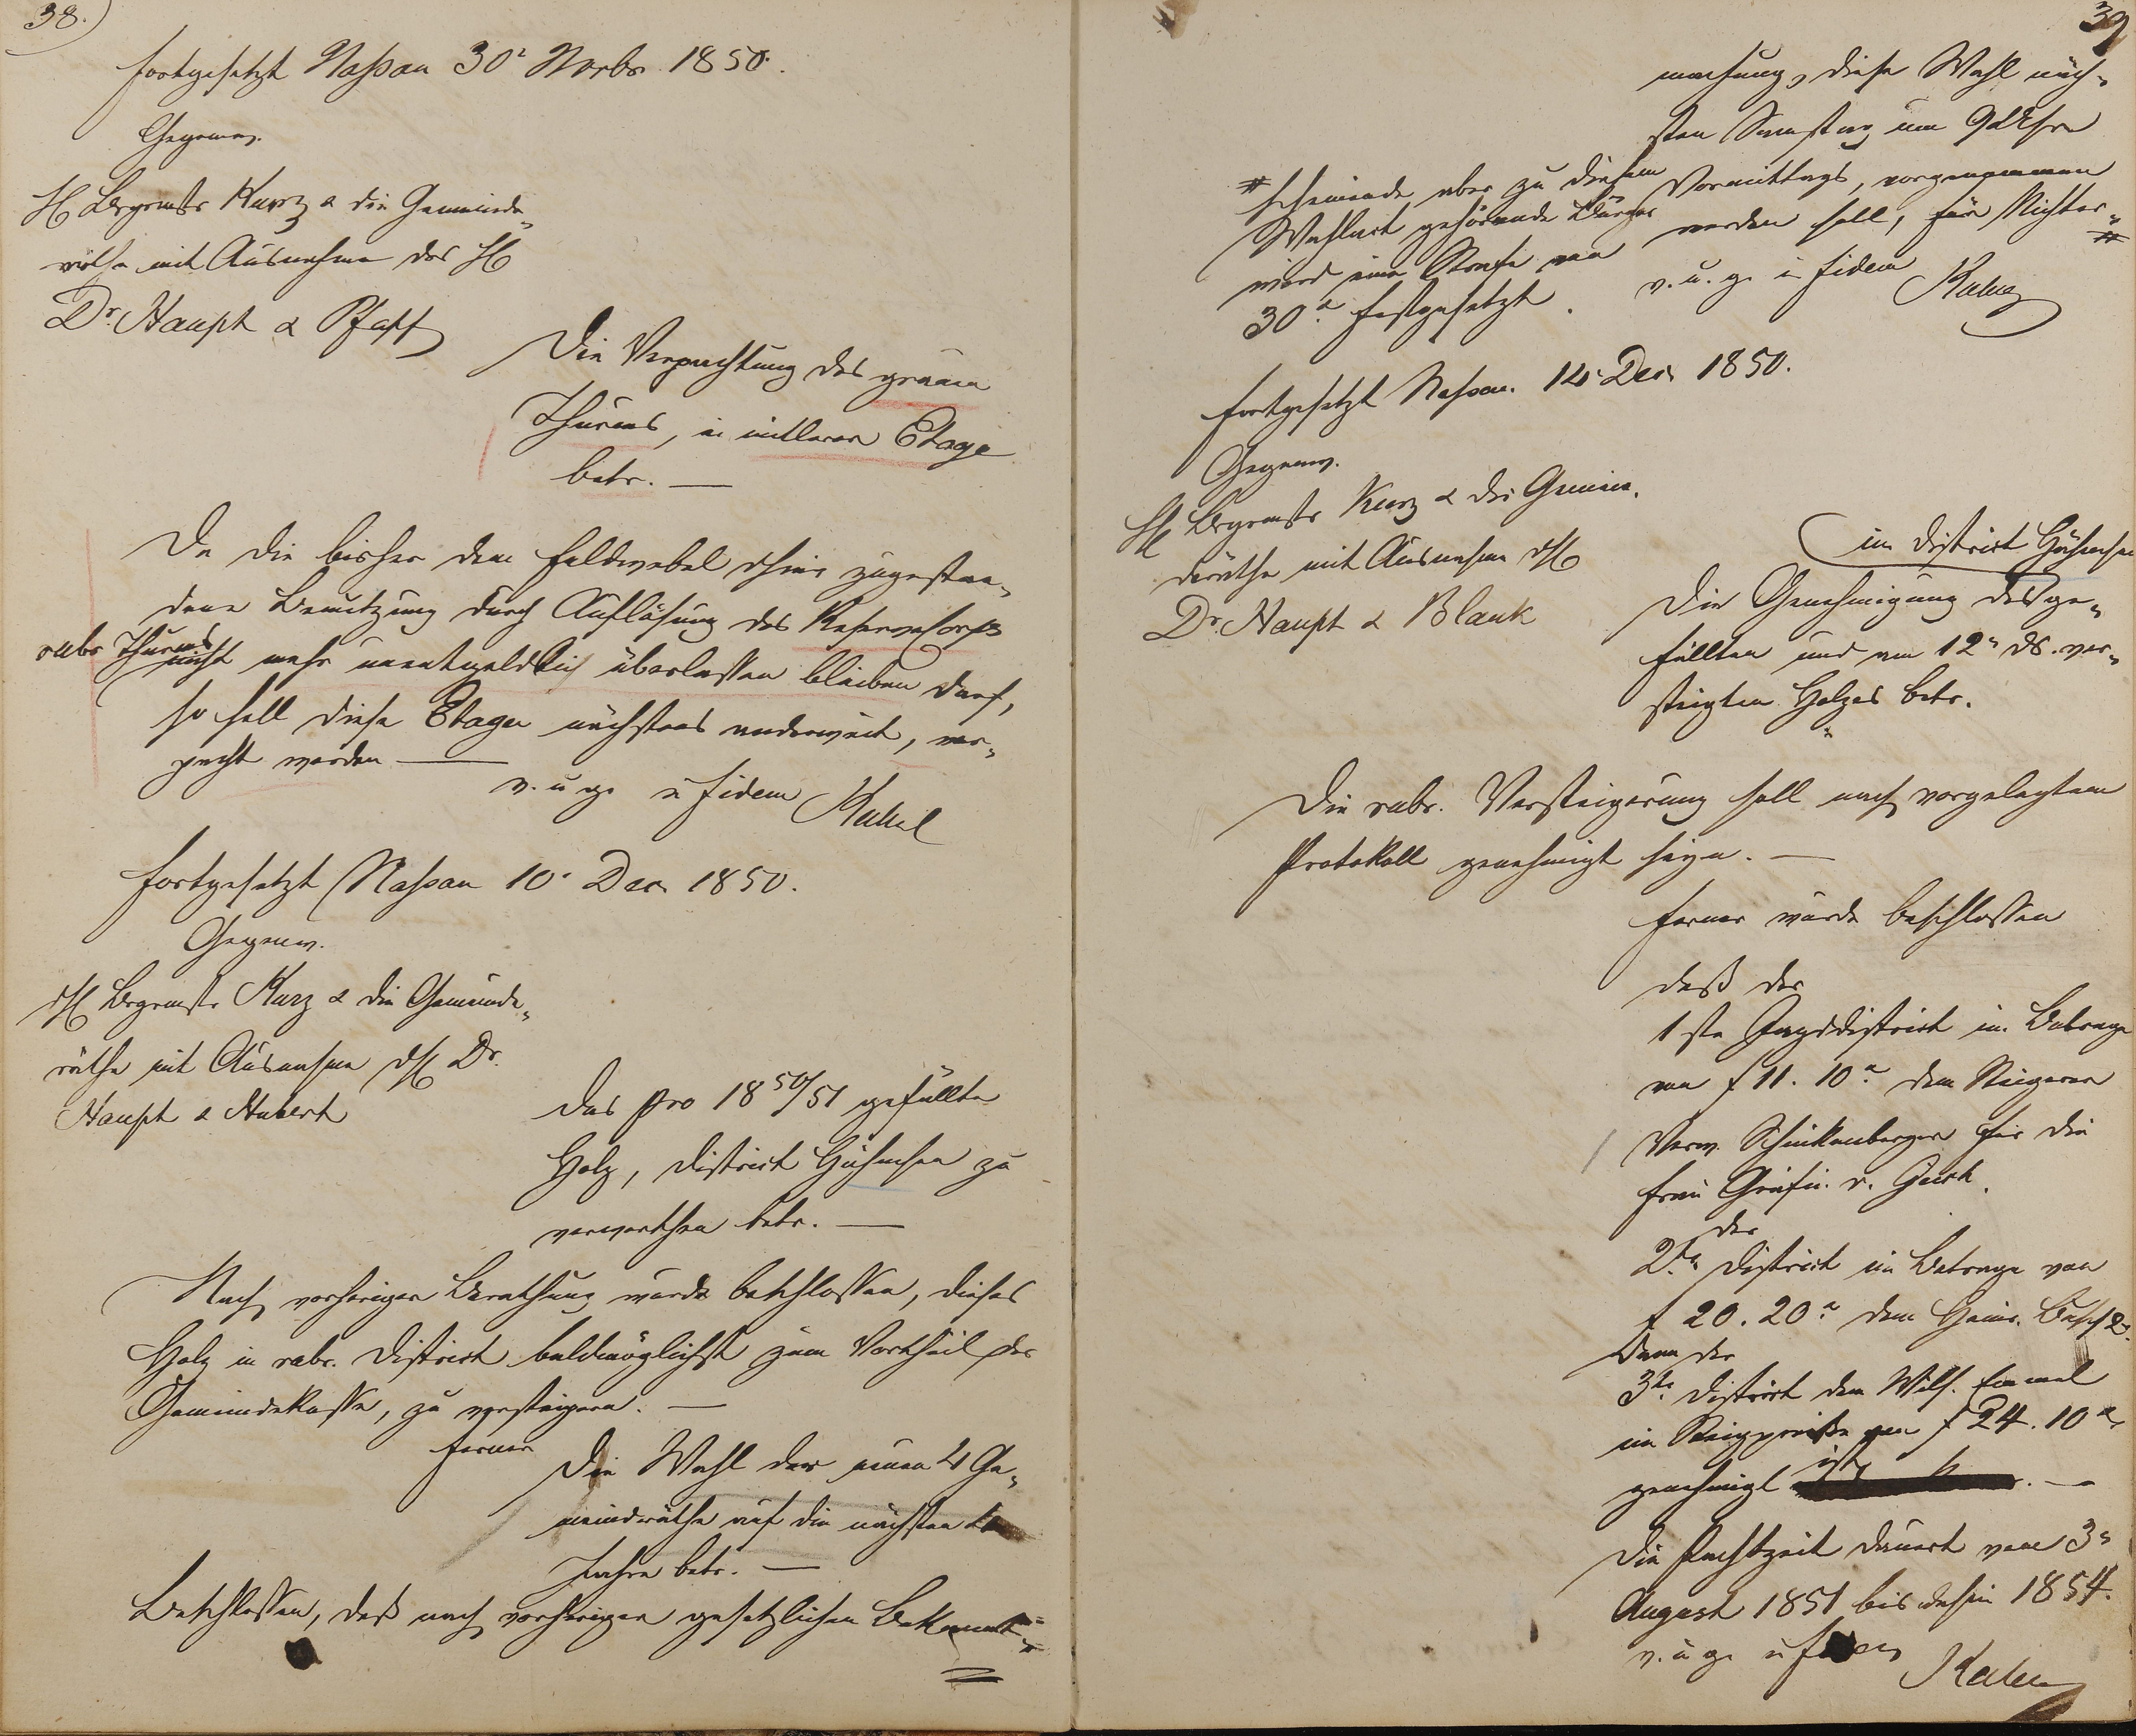 38.)
fortgesetzt Naßau 30t Novbr 1850.
Gegenw.
H Bürgermstr Kurz & die Gemeinde„
räthe mit Ausnahme des H
Dr. Haupt & Pfaff
Die Verpachtung des grauen
Thurms, in mittlerer Etage
betr. —
Da die bisher dem Feldwebel zugestan„
dene Benutzung durch Auflösung des Reservecorps
rubr Thurms
nicht mehr unentgeldlich überlassen bleiben darf,
so soll diese Etage nächstens anderweit, ver„
pacht werden —
v. u. g. in fidem
fortgesetzt Naßau 10t Dec. 1850.
Gegenw.
H Bürgermstr Kurz & die Gemeinde„
räthe mit Ausnahme H Dr.
Haupt & Hubert
Das pro 1850/51 gefällte
Holz, District zu
verwerthen betr. —
Nach vorheriger Berathung wurde beschlossen, dieses
Holz in rubr. District baldmöglichst zum Vortheil der
Gemeindekasse, zu versteigern. —
ferner
Die Wahl der neuen 4 Ge„
meindräthe auf die nächsten
Jahre betr. —
Beschlossen, daß nach vorheriger gesetzlicher Bekannt„
39
machung, diese Wahl näch„
sten Samstag um 9 Uhr
Vormittags, vorgenommen
werden soll, für Nichter„
#
# scheinende aber zu diesem
Wahlact gehörende Bürger
wird eine Strafe von
30x festgesetzt.
v. u. g. in fidem
fortgesetzt Naßau. 14t Dec. 1850.
Gegenw.
H Bürgermstr Kurz & die Gemein„
deräthe mit Ausnahme H
Dr. Haupt & Blank
im District
Die Genehmigung des ge„
fällten und am 12t ds. ver„
steigten Holzes betr.
Die rubr. Versteigerung soll nach vorgelegtem
Protokoll genehmigt seyn. —
ferner wurde beschlossen
daß der
1ste Jagddistrict im Betrage
von f 11. 10x dem Steigerer
Verw. Schinkenberger für die
Frau Gräfin v.
der
2te District im Betrage von
f 20. 20x dem Heinr. Busch 2r
dann der
3te District dem Wilh. Emmel
im Steigpreiße von f 24. 10x
genehmigt ist. —
Die Pachtzeit dauert vom 3t
August 1851 bis dahin 1854.
v. u. g. in fidem